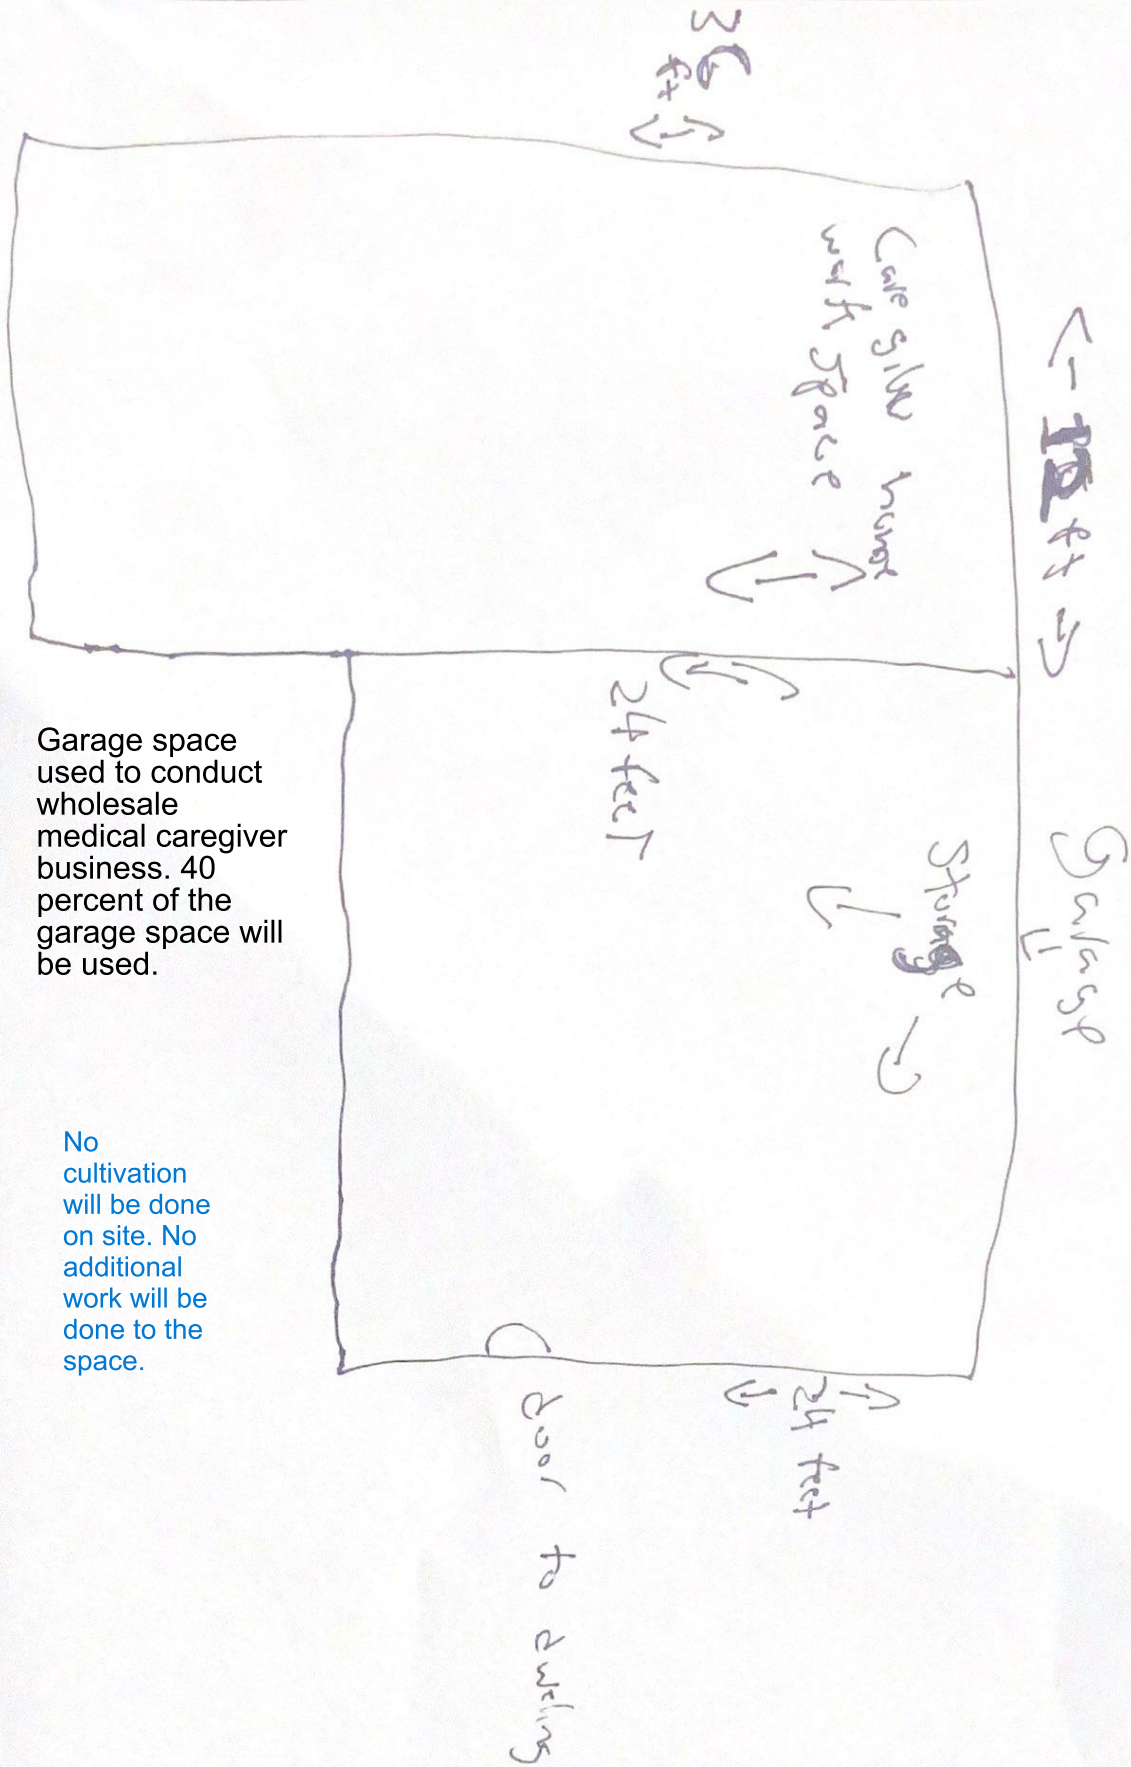 36
ft
← 12 ft →
Care giver home
work space
24 feet
Garage
Storage
24 feet
door to dweling
Garage space
used to conduct
wholesale
medical caregiver
business. 40
percent of the
garage space will
be used.
No
cultivation
will be done
on site. No
additional
work will be
done to the
space.